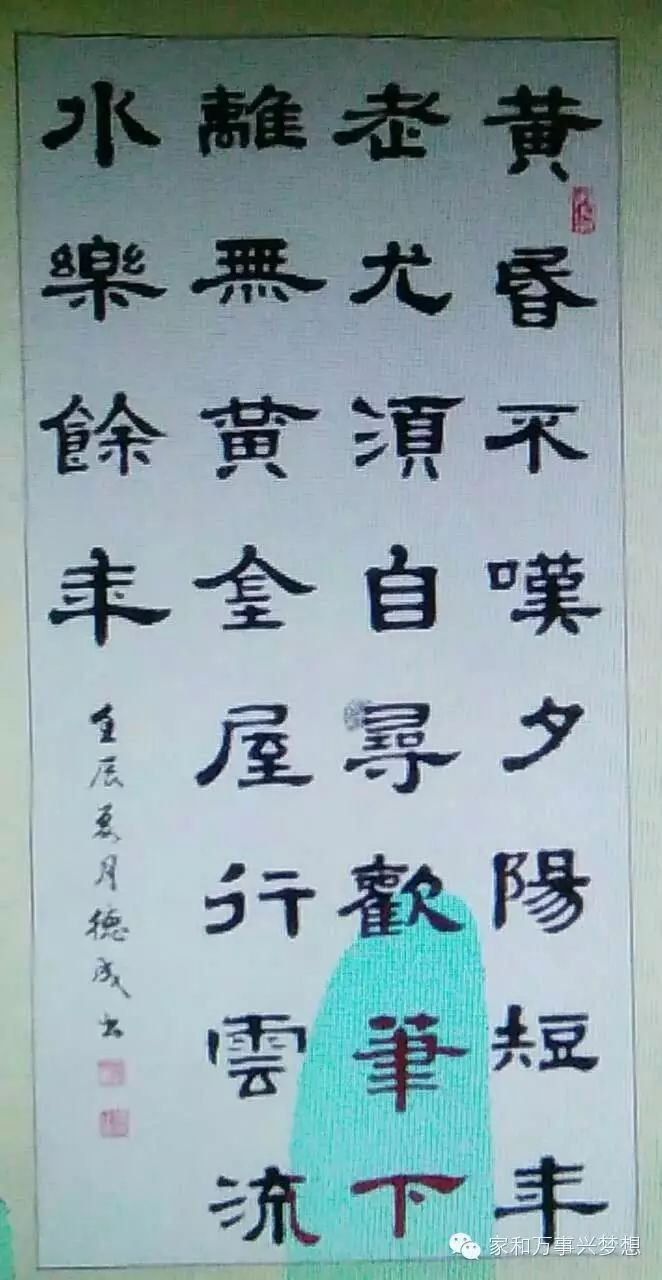 黄昏不嘆夕陽短年
老尤須自尋歡筆下
離無黄金屋行雲流
水樂餘年
壬辰夏月德成書
家和万事兴梦想